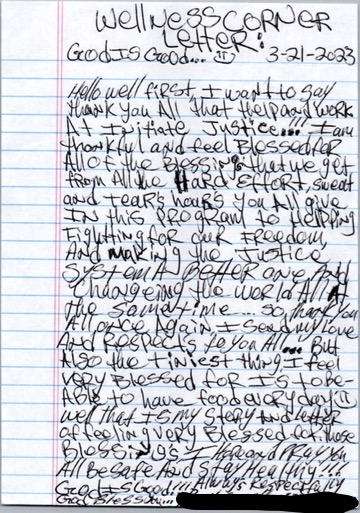 Wellness Corner
Letter:
God Is Good... 3-21-2023
Hello well first, I want to say
thank you All that Help and work
At Initiate Justice... I am
thankful and feel Blessed for
All of the Blessings that we get
from All the Hard Effort, sweat
and tears hours you All give
In this program to Helpping
Fighting for our Freedom,
And making the Justice
System A Better one And
Changeing the world All At
the same time... so, thank you
All once Again I send my Love
And Respects to you All... But
Also the tiniest thing I feel
very Blessed for Is to be-
Able to have food every day
well that Is my story and letter
of feeling very Blessed for those
Blessings I hope and Pray you
All Be safe And Stay Healthy!!!
God Is Good!!! Always Respectfully
God Bless you...